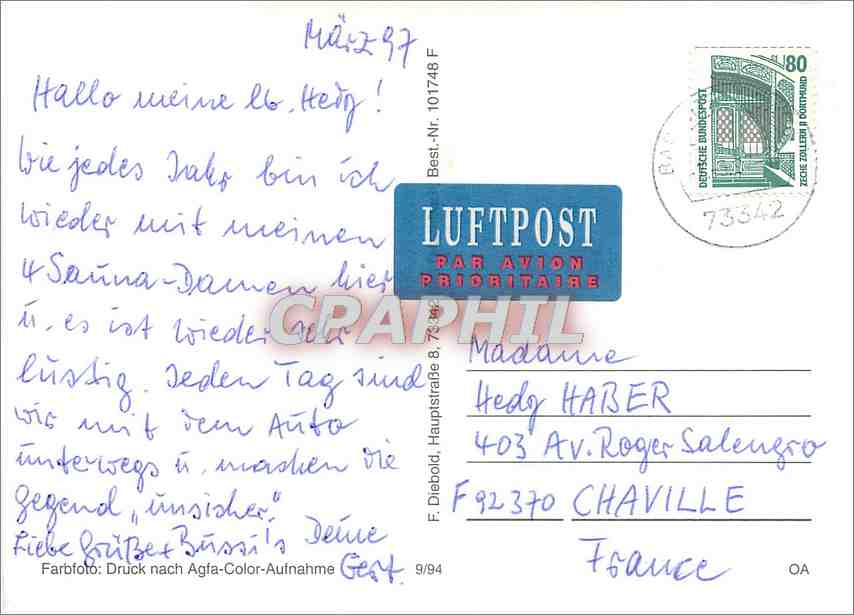 März 97
Hallo meine lb. Hedy!
Wie jedes Jahr bin ich
wieder mit meinen
4 Sauna-Damen hier
u. es ist wieder sehr
lustig. Jeden Tag sind
wir mit dem Auto
unterwegs u. machen die
Gegend „unsicher".
Liebe Grüße + Bussi's Deine
Gert.
Farbfoto: Druck nach Agfa-Color-Aufnahme
9/94
OA
F. Diebold, Hauptstraße 8, 73342
Best.-Nr. 101748 F
LUFTPOST
PAR AVION
PRIORITAIRE
80
DEUTSCHE BUNDESPOST
ZECHE ZOLLERN II DORTMUND
73342
CPAPHIL
Madame
Hedy HABER
403 Av. Roger Salengro
F 92370 CHAVILLE
France